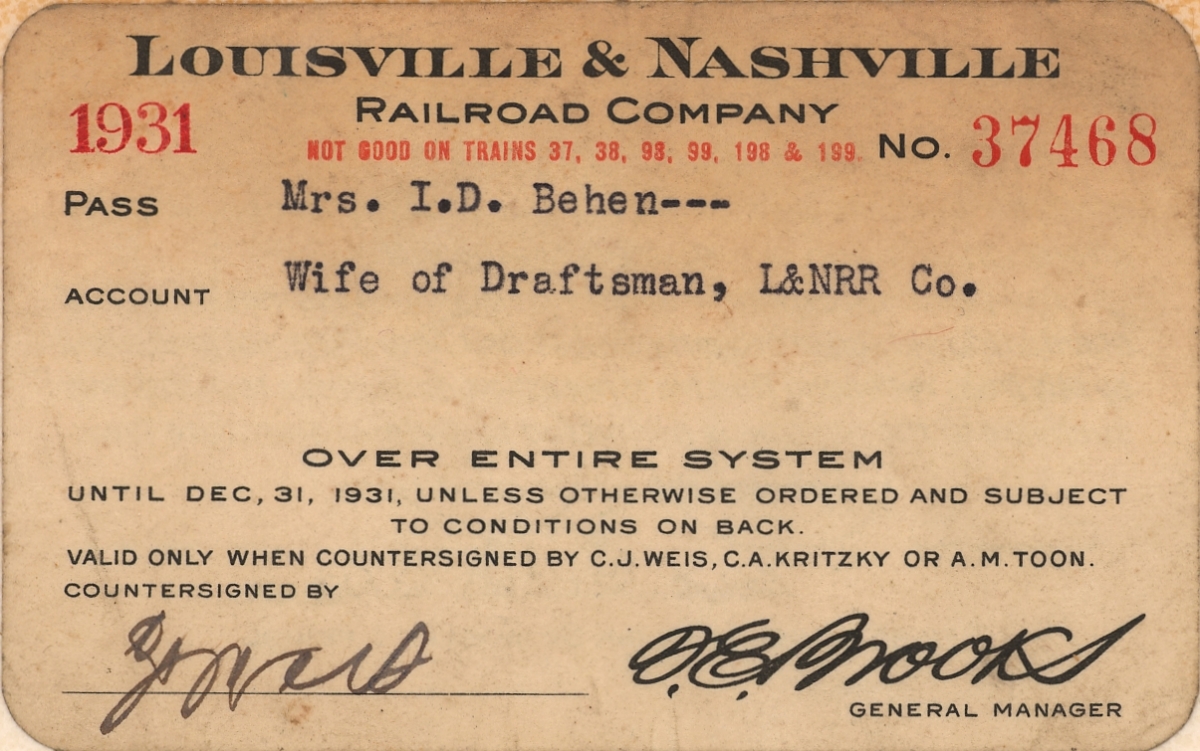 LOUISVILLE & NASHVILLE
RAILROAD COMPANY
1931
NOT GOOD ON TRAINS 37, 38, 98, 99, 198 & 199.
No. 37468
PASS Mrs. I.D. Behen---
ACCOUNT Wife of Draftsman, L&NRR Co.
OVER ENTIRE SYSTEM
UNTIL DEC, 31, 1931, UNLESS OTHERWISE ORDERED AND SUBJECT
TO CONDITIONS ON BACK.
VALID ONLY WHEN COUNTERSIGNED BY C.J. WEIS, C.A. KRITZKY OR A.M. TOON.
COUNTERSIGNED BY
Brooks
GENERAL MANAGER